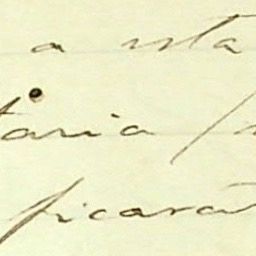 a esta
taria
ficara